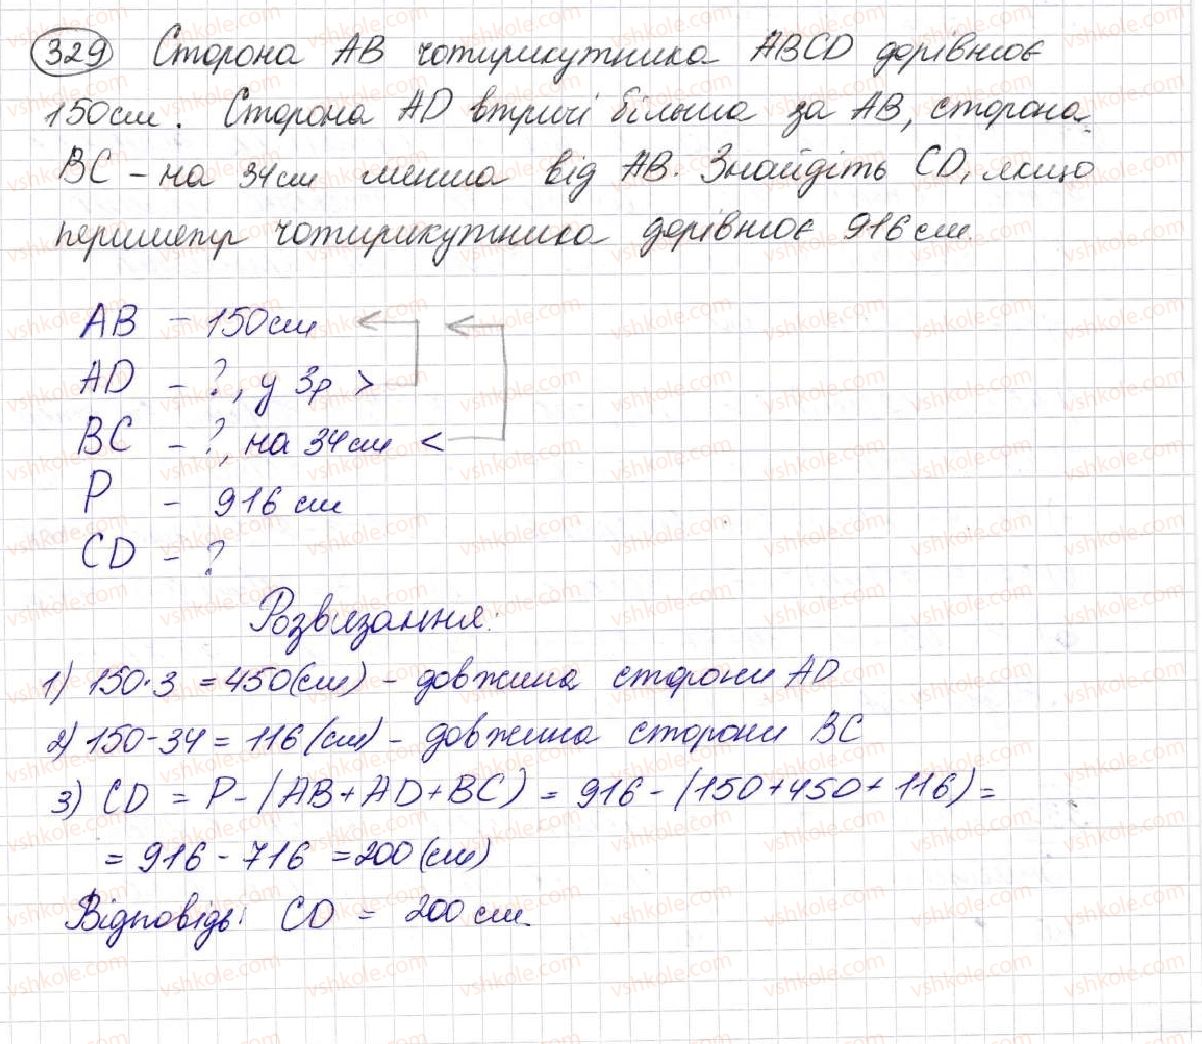 329 Сторона AB чотирикутника ABCD дорівнює
150см. Сторона AD втричі більша за AB, сторона
BC - на 34см менша від AB. Знайдіть CD, якщо
периметр чотирикутника дорівнює 916см.
AB - 150см
AD - ?, у 3р >
BC - ?, на 34см <
P - 916 см
CD - ?
Розвязання:
1) 150·3 = 450(см) - довжина сторони AD
2) 150-34 = 116(см) - довжина сторони BC
3) CD = P-(AB+AD+BC) = 916-(150+450+116)=
= 916-716 =200(см)
Відповідь: CD = 200см.